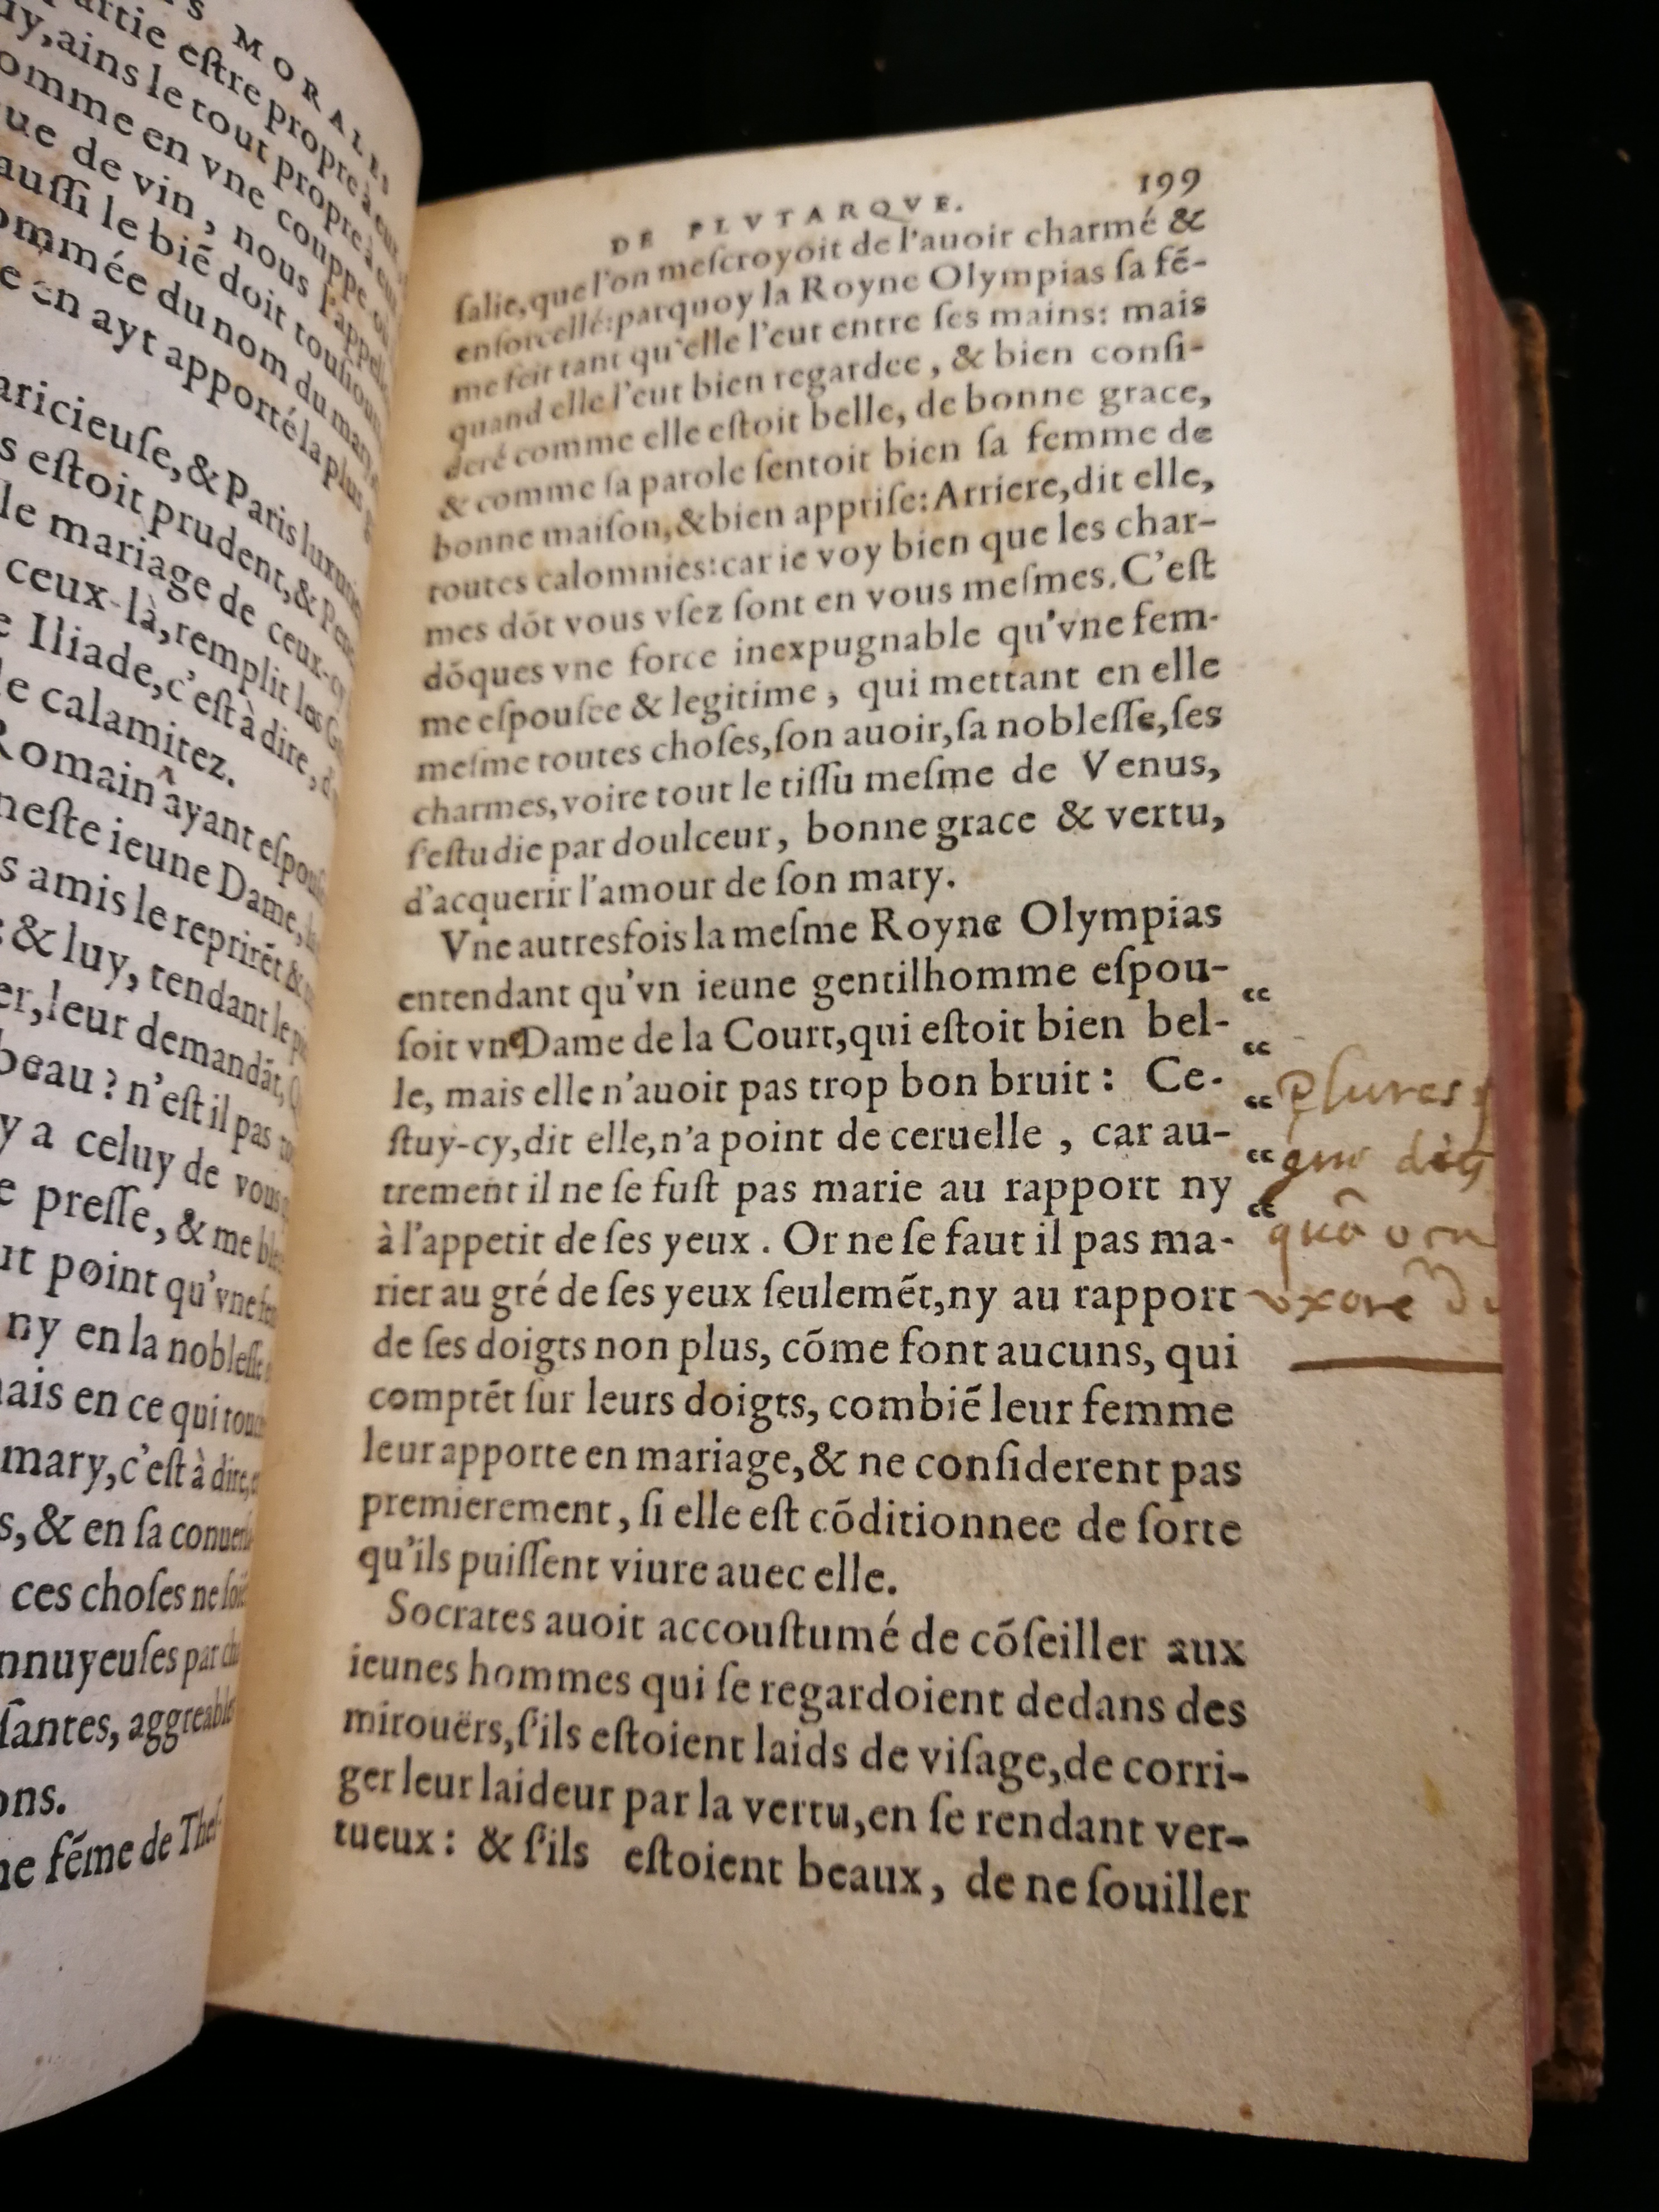 S MORALES
partie estre propre à eux
uy, ains le tout propre à eux
omme en vne couppe où
ue de vin, nous l'appel
aussi le biē doit tousiours
ommée du nom du mary
e en ayt apporté la plus
aricieuse, & Paris luxurie
s estoit prudent, & Pene
le mariage de ceux-cy
ceux-là, remplit les G
e Iliade, c'est à dire, d
le calamitez.
Romain ayant espousé
neste ieune Dame,
s amis le reprirēt &
: & luy, tendant le p
er, leur demandāt, Q
beau? n'est il pas to
y a celuy de vous q
e presse, & me ble
ut point qu'vne fem
ny en la noblesse
nais en ce qui touc
mary, c'est à dire, e
s, & en sa conuers
ces choses ne soiē
nnuyeuses par cha
santes, aggreable
ons.
ne fēme de Thes
DE PLVTARQVE. 199
salie, que l'on mescroyoit de l'auoir charmé &
ensorcellé: parquoy la Royne Olympias sa fē-
me feit tant qu'elle l'eut entre ses mains: mais
quand elle l'eut bien regardee, & bien consi-
deré comme elle estoit belle, de bonne grace,
& comme sa parole sentoit bien sa femme de
bonne maison, & bien apprise: Arriere, dit elle,
toutes calomnies: car ie voy bien que les char-
mes dōt vous vsez sont en vous mesmes. C'est
dōques vne force inexpugnable qu'vne fem-
me espousee & legitime, qui mettant en elle
mesme toutes choses, son auoir, sa noblesse, ses
charmes, voire tout le tissu mesme de Venus,
s'estudie par doulceur, bonne grace & vertu,
d'acquerir l'amour de son mary.
Vne autresfois la mesme Royne Olympias
entendant qu'vn ieune gentilhomme espou- “
soit vne Dame de la Court, qui estoit bien bel- “
le, mais elle n'auoit pas trop bon bruit: Ce- “
stuy-cy, dit elle, n'a point de ceruelle, car au- “
trement il ne se fust pas marie au rapport ny “
à l'appetit de ses yeux. Or ne se faut il pas ma-
rier au gré de ses yeux seulemēt, ny au rapport
de ses doigts non plus, cōme font aucuns, qui
comptēt sur leurs doigts, combiē leur femme
leur apporte en mariage, & ne considerent pas
premierement, si elle est cōditionnee de sorte
qu'ils puissent viure auec elle.
Socrates auoit accoustumé de cōseiller aux
ieunes hommes qui se regardoient dedans des
mirouërs, s'ils estoient laids de visage, de corri-
ger leur laideur par la vertu, en se rendant ver-
tueux: & s'ils estoient beaux, de ne souiller
plures
quā
vxorē